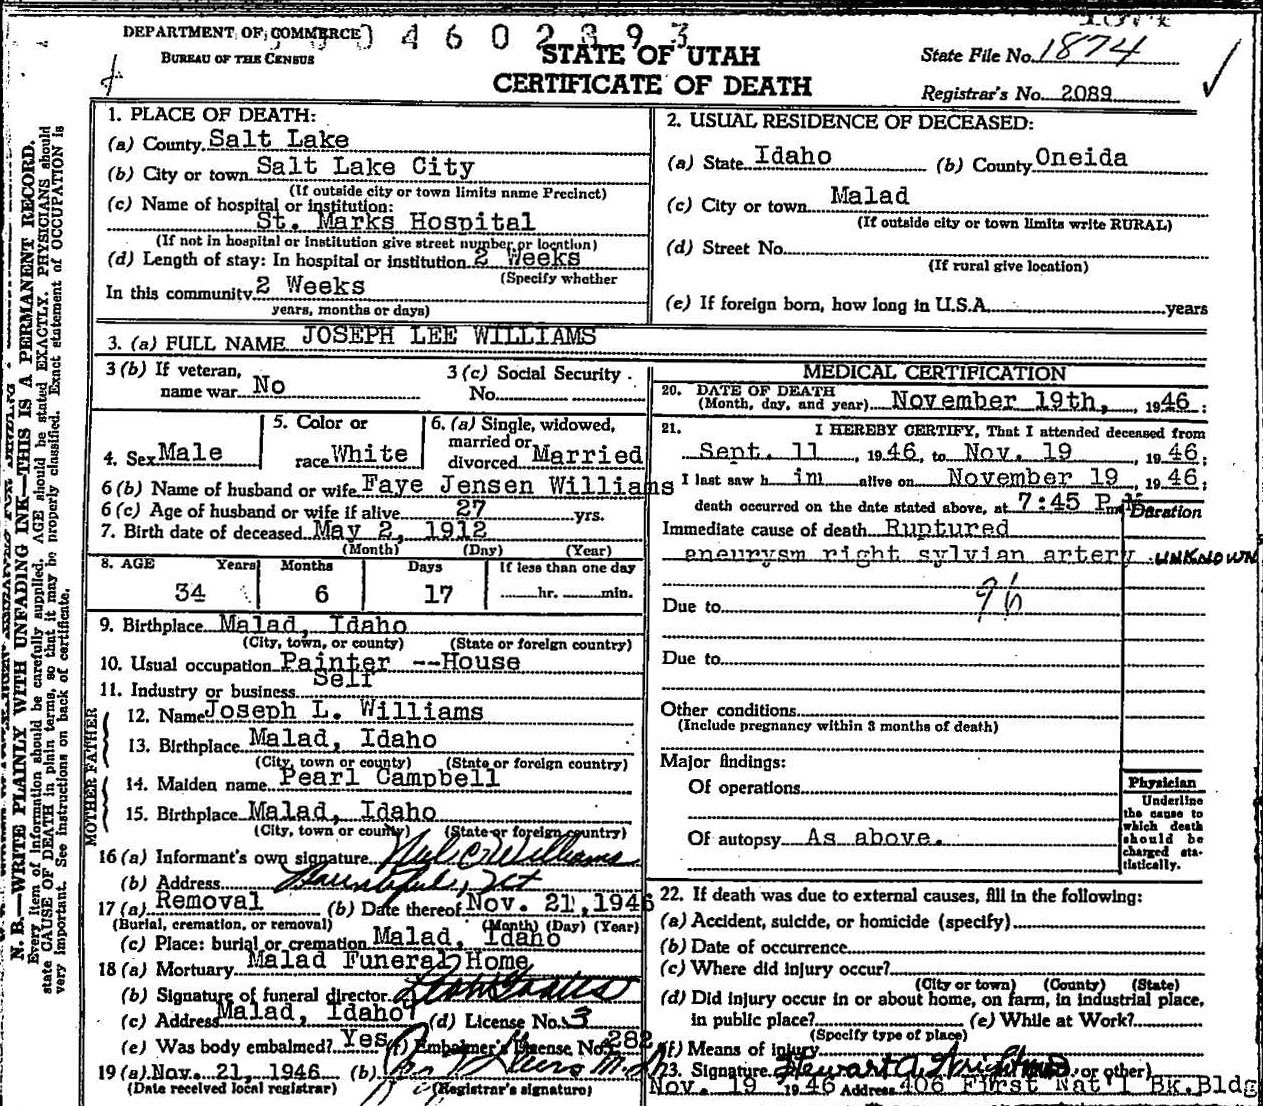 DEPARTMENT OF COMMERCE
BUREAU OF THE CENSUS
4 6 0 2 8 9 3
STATE OF UTAH
CERTIFICATE OF DEATH
State File No. 1874
Registrar's No. 2089
N. B.—WRITE PLAINLY WITH UNFADING INK—THIS IS A PERMANENT RECORD.
Every item of information should be carefully supplied. AGE should be stated EXACTLY. PHYSICIANS should
state CAUSE OF DEATH in plain terms, so that it may be properly classified. Exact statement of OCCUPATION is
very important. See instructions on back of certificate.
1. PLACE OF DEATH:
(a) County Salt Lake
(b) City or town Salt Lake City
(If outside city or town limits name Precinct)
(c) Name of hospital or institution:
St. Marks Hospital
(If not in hospital or institution give street number or location)
(d) Length of stay: In hospital or institution 2 Weeks
(Specify whether
In this community 2 Weeks
years, months or days)
2. USUAL RESIDENCE OF DECEASED:
(a) State Idaho (b) County Oneida
(c) City or town Malad
(If outside city or town limits write RURAL)
(d) Street No.
(If rural give location)
(e) If foreign born, how long in U.S.A. years
3. (a) FULL NAME JOSEPH LEE WILLIAMS
3 (b) If veteran, name war No
3 (c) Social Security No.
4. Sex Male
5. Color or race White
6. (a) Single, widowed, married or divorced Married
6 (b) Name of husband or wife Faye Jensen Williams
6 (c) Age of husband or wife if alive 27 yrs.
7. Birth date of deceased May 2, 1912
(Month) (Day) (Year)
8. AGE Years Months Days If less than one day
34 6 17 hr. min.
9. Birthplace Malad, Idaho
(City, town, or county) (State or foreign country)
10. Usual occupation Painter --House
11. Industry or business Self
FATHER
12. Name Joseph L. Williams
13. Birthplace Malad, Idaho
(City, town or county) (State or foreign country)
MOTHER
14. Maiden name Pearl Campbell
15. Birthplace Malad, Idaho
(City, town or county) (State or foreign country)
16 (a) Informant's own signature C Williams
(b) Address Bountiful, Ut
17 (a) Removal (b) Date thereof Nov. 21, 1946
(Burial, cremation, or removal) (Month) (Day) (Year)
(c) Place: burial or cremation Malad, Idaho
18 (a) Mortuary Malad Funeral Home
(b) Signature of funeral director
(c) Address Malad, Idaho (d) License No. 3
(e) Was body embalmed? Yes (f) Embalmer's License No. 282
19 (a) Nov. 21, 1946 (b) M. D.
(Date received local registrar) (Registrar's signature)
MEDICAL CERTIFICATION
20. DATE OF DEATH
(Month, day, and year) November 19th, 1946:
21. I HEREBY CERTIFY, That I attended deceased from
Sept. 11, 1946, to Nov. 19, 1946;
I last saw h im alive on November 19, 1946;
death occurred on the date stated above, at 7:45 P.m
Duration
Immediate cause of death Ruptured
aneurysm right sylvian artery UNKNOWN
Due to
Due to
Other conditions
(Include pregnancy within 3 months of death)
Major findings:
Of operations
Of autopsy As above.
Physician
Underline
the cause to
which death
should be
charged sta-
tistically.
22. If death was due to external causes, fill in the following:
(a) Accident, suicide, or homicide (specify)
(b) Date of occurrence
(c) Where did injury occur?
(City or town) (County) (State)
(d) Did injury occur in or about home, on farm, in industrial place,
in public place? (e) While at Work?
(Specify type of place)
(f) Means of injury
23. Signature Stewart A. Wright or other)
Nov. 19 1946 Address 406 First Nat'l Bk.Bldg